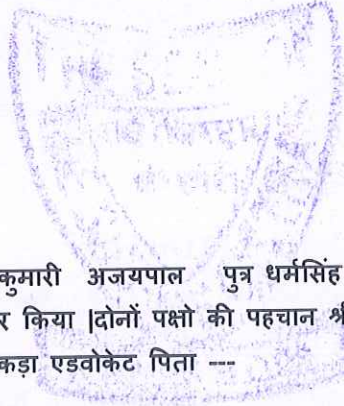 कुमारी अजयपाल पुत्र धर्मसिंह
र किया |दोनों पक्षो की पहचान श्री
कड़ा एडवोकेट पिता ---